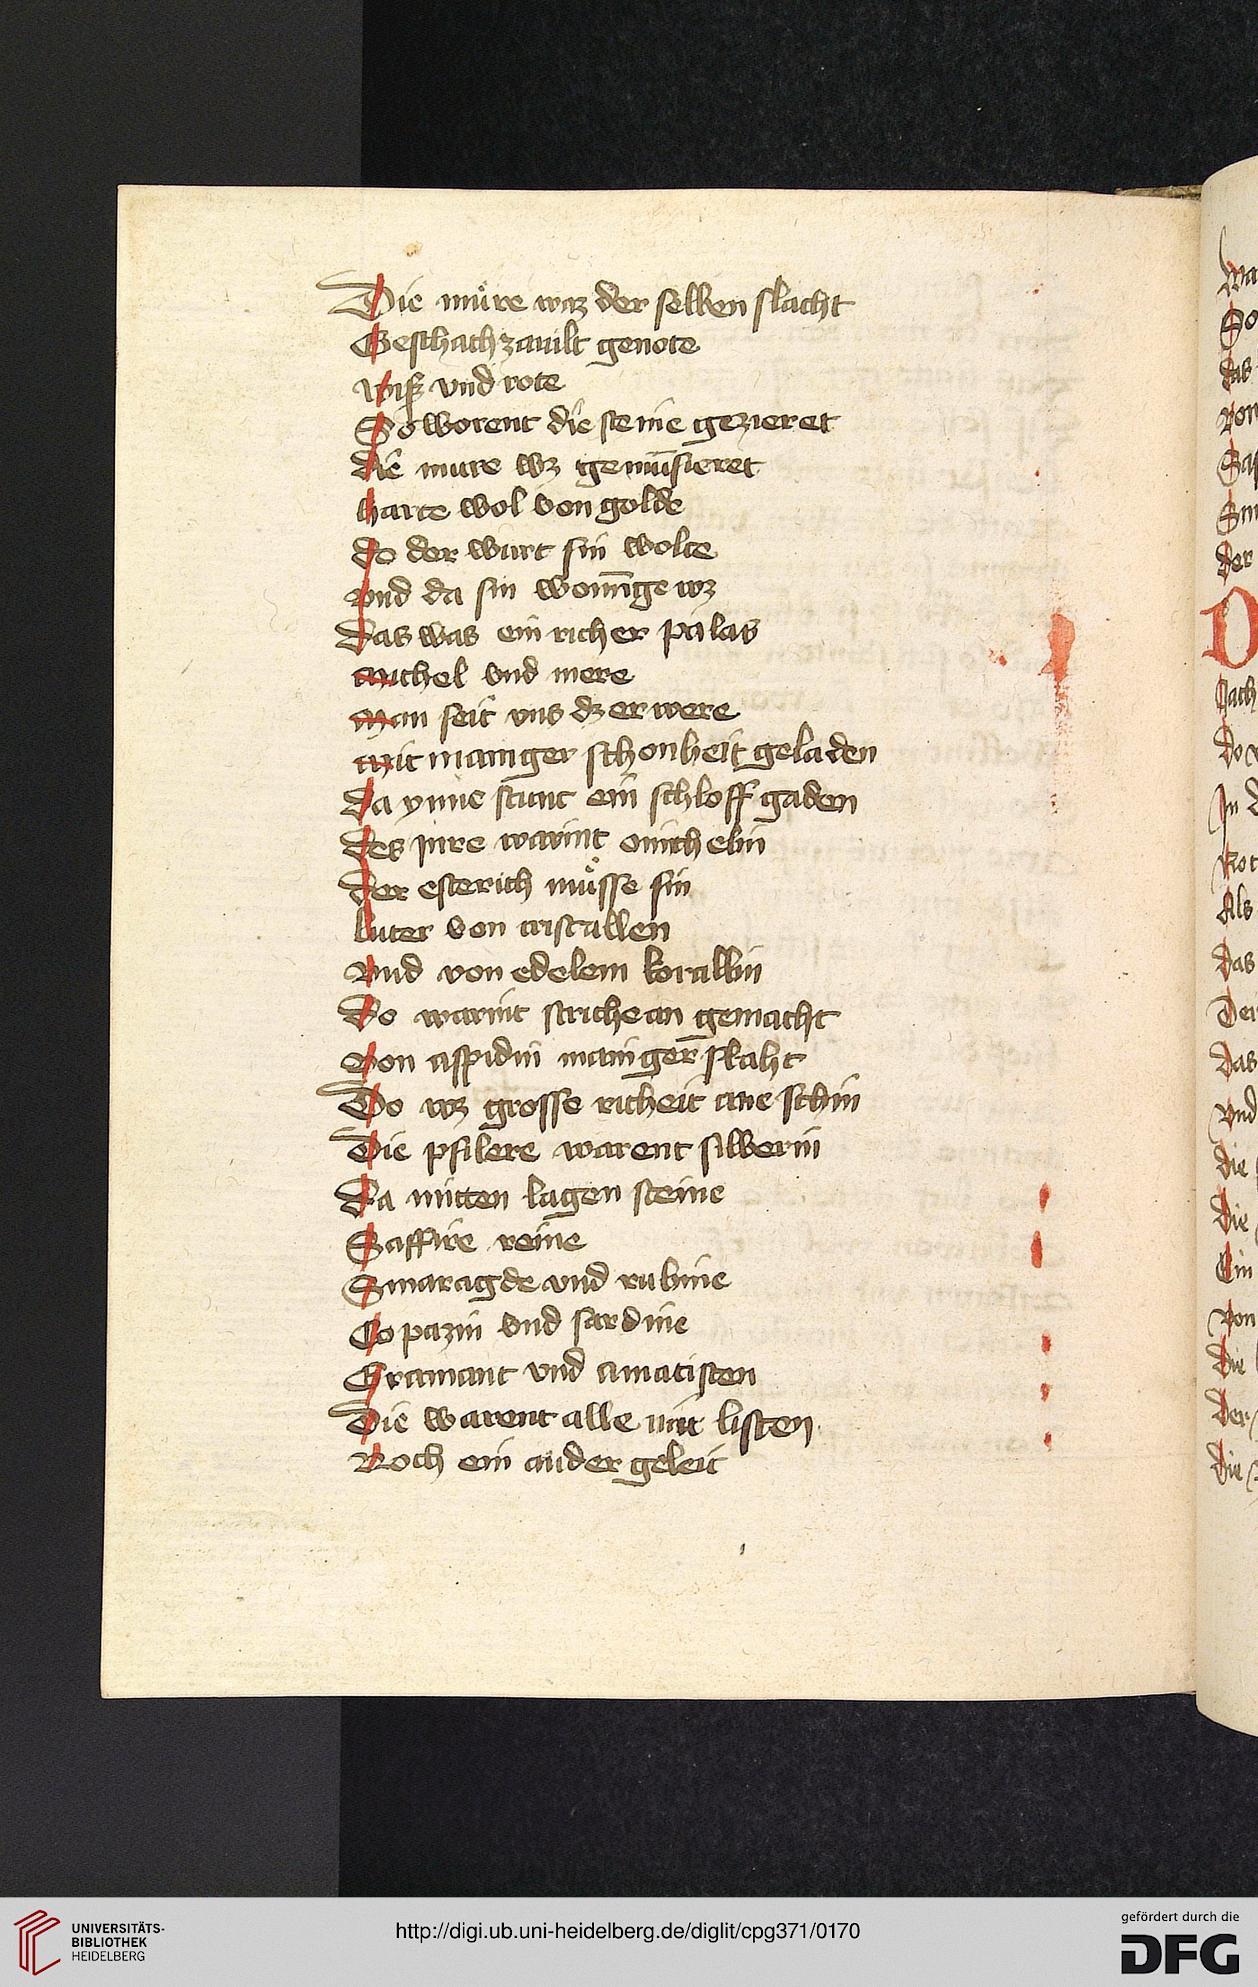 Die mu̍re wz der selben slacht
Geschach zauilt genote
wiß vnd rote
So worent die steine gezieret
die mure wz gemu̍sieret
harte wol von golde
do der wurt sin wolte
vnd da sin wonu̅ge wz
das was ein richer palas
michel vnd mere
man seit vns dz er were
mit maniger schonheit geladen
da ynne stunt ein schloff gaden
des jnre warint
der esterich mu̍sse sin
luter von cristallen
vnd von edelem korallin
Do warint striche an gemacht
von aspidin maniger slaht
Do wz grosse richeit ane schin
Die pfilere warent silberin
Da mitten lagen steine
Saffire reine
Smaragde vnd rubine
Topazin vnd sardine
Gramant vnd amatisten
Die warent alle mit listen
Noch ein ander geleit
D
So
das
von
der
Jn
Als
das
das
vnd
die
die
Ein
von
die
der
die
UNIVERSITÄTS-
BIBLIOTHEK
HEIDELBERG
http://digi.ub.uni-heidelberg.de/diglit/cpg371/0170
gefördert durch die
DFG